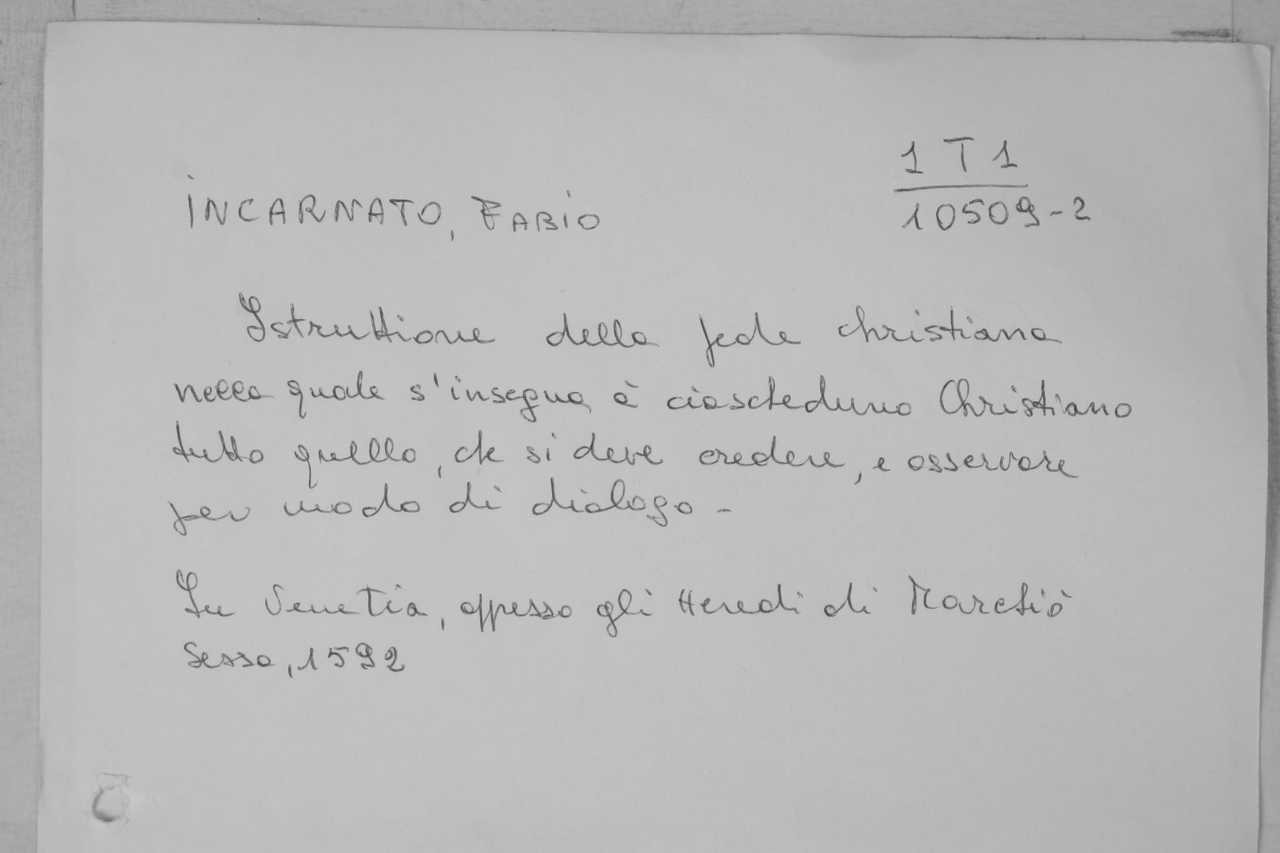 1 T 1
10509-2
INCARNATO, FABIO
Istruttione della fede christiana
nella quale s'insegna à ciascheduno Christiano
tutto quello, che si deve credere, e osservare
per modo di dialogo -
In Venetia, appesso gli Heredi di Marchiò
Sessa, 1592